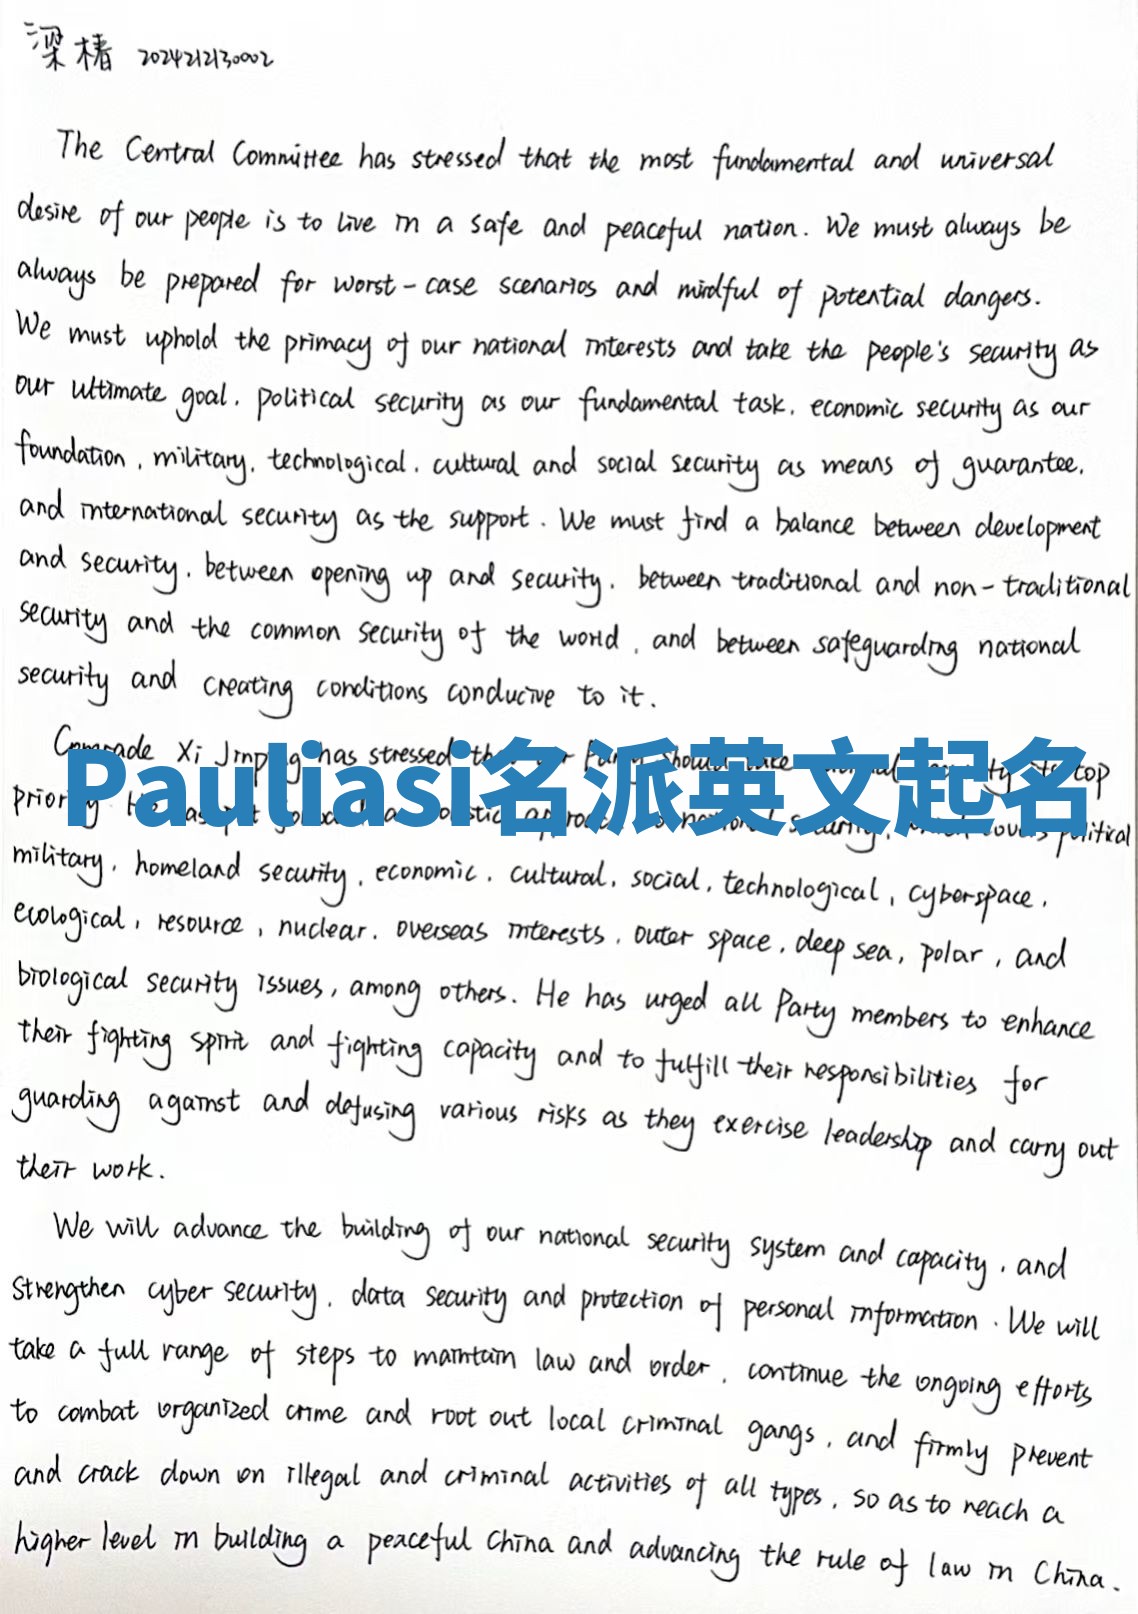 梁椿 2024212130002
The Central Committee has stressed that the most fundamental and universal
desire of our people is to live in a safe and peaceful nation. We must always be
always be prepared for worst-case scenarios and mindful of potential dangers.
We must uphold the primacy of our national interests and take the people's security as
our ultimate goal, political security as our fundamental task, economic security as our
foundation, military, technological, cultural and social security as means of guarantee,
and international security as the support. We must find a balance between development
and security, between opening up and security, between traditional and non-traditional
security and the common security of the world, and between safeguarding national
security and creating conditions conducive to it.
Comrade Xi Jinping has stressed should top
Pauliasi名派英文起名
priority political
military, homeland security, economic, cultural, social, technological, cyberspace,
ecological, resource, nuclear, overseas interests, outer space, deep sea, polar, and
biological security issues, among others. He has urged all Party members to enhance
their fighting spirit and fighting capacity and to fulfill their responsibilities for
guarding against and defusing various risks as they exercise leadership and carry out
their work.
We will advance the building of our national security system and capacity, and
strengthen cyber security, data security and protection of personal information. We will
take a full range of steps to maintain law and order, continue the ongoing efforts
to combat organized crime and root out local criminal gangs, and firmly prevent
and crack down on illegal and criminal activities of all types, so as to reach a
higher level in building a peaceful China and advancing the rule of law in China.